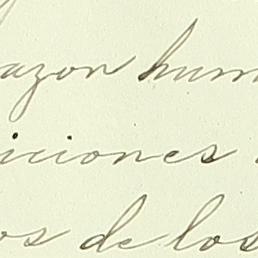 azon hum
iciones
os de los